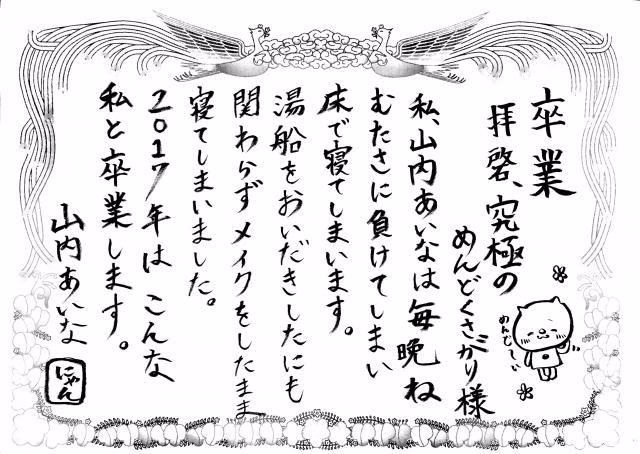 卒業
拝啓、究極の
めんどくさがり様
私、山内あいなは毎晩ね
むたさに負けてしまい
床で寝てしまいます。
湯船をおいだきしたにも
関わらずメイクをしたまま
寝てしまいました。
2017年はこんな
私と卒業します。
山内あいな
にゃん